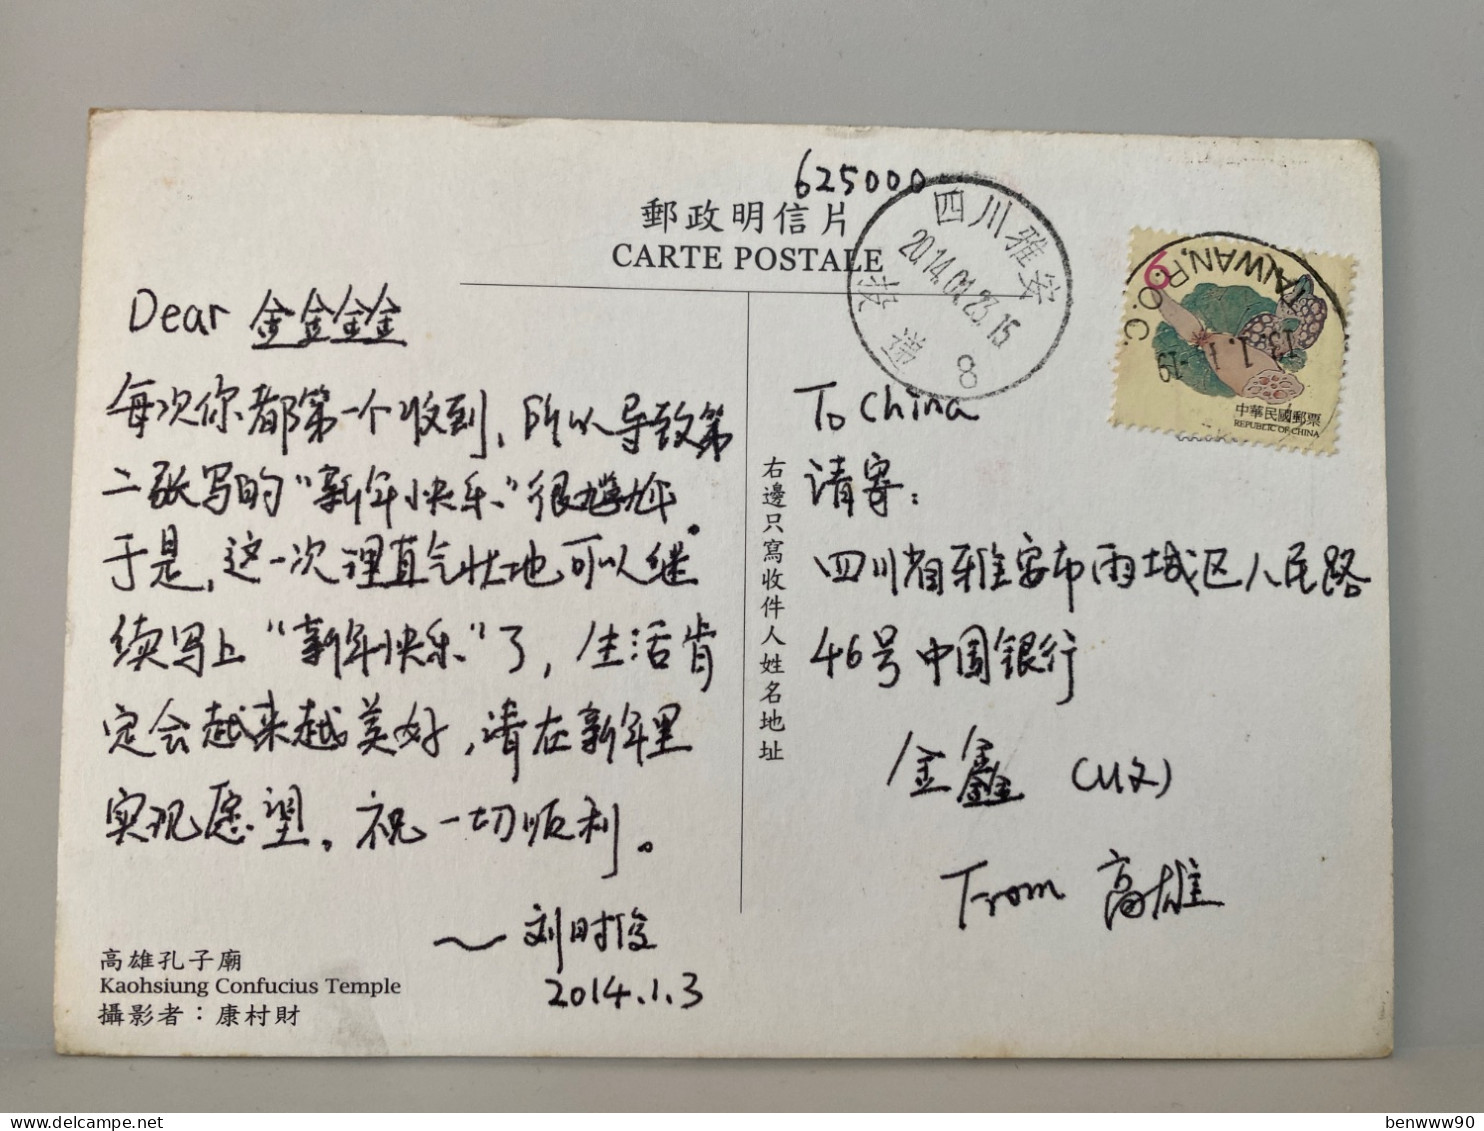 625000
郵政明信片
CARTE POSTALE
四川雅安
2014.01.23.15
投遞
8
TAIWAN,R.O.C.
-19
中華民國郵票
REPUBLIC OF CHINA
Dear 金金金金
每次你都第一个收到，所以导致第
二张写的“新年快乐”很尴尬。
于是，这一次理直气壮地可以继
续写上“新年快乐”了，生活肯
定会越来越美好，请在新年里
实现愿望。祝一切顺利。
～刘时俊
2014.1.3
高雄孔子廟
Kaohsiung Confucius Temple
攝影者：康村財
右邊只寫收件人姓名地址
To China
请寄：
四川省雅安市雨城区人民路
46号中国银行
金鑫（收）
From 高雄
benwww90